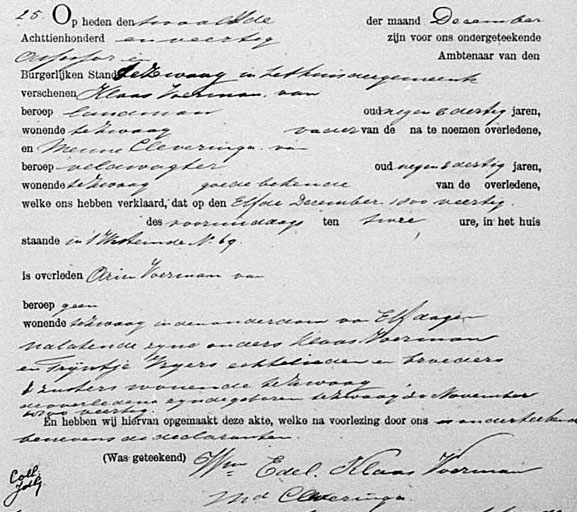 25. Op heden den twaalfde der maand December
Achttienhonderd en veertig zijn voor ons ondergeteekende
Ambtenaar van den
Burgerlijken Stand te Zwaag in het huis der gemeente
verschenen Klaas Voerman van
beroep landman oud negen & dertig jaren,
wonende te Zwaag vader van de na te noemen overledene,
en Menne Cleveringa van
beroep veldwagter oud negen & dertig jaren,
wonende te Zwaag goede bekende van de overledene,
welke ons hebben verklaard, dat op den Elfde December 1800 veertig
des voormiddags ten twee ure, in het huis
staande in 't Westeinde No. 69
is overleden Arien Voerman van
beroep geen
wonende te Zwaag in den ouderdom van Elf dagen
nalatende zyne ouders Klaas Voerman
en Trijntje echtelieden en broeders
& zusters wonende te Zwaag
de overledene zynde geboren te Zwaag 30 November
1800 veertig.
En hebben wij hiervan opgemaakt deze akte, welke na voorlezing door ons is onderteekend
benevens de declaranten.
(Was geteekend) Wm Edel. Klaas Voerman
Md Cleveringa
Coll.